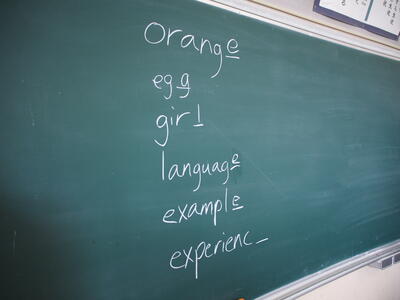 orange
egg
girl
language
example
experienc_